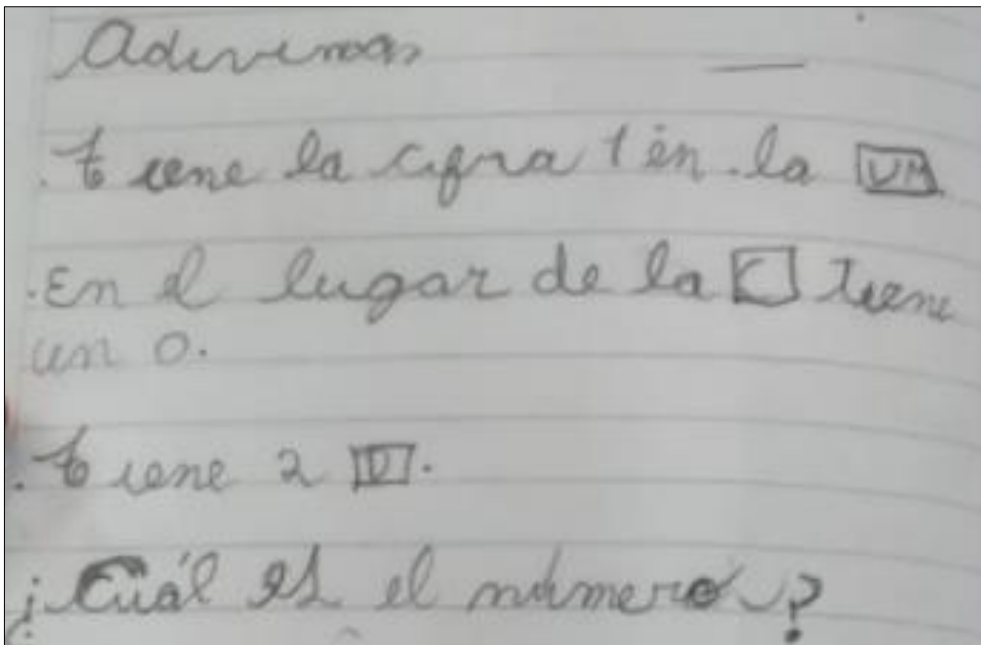 Adivinas
. tiene la cifra 1 en la UM
. En el lugar de la C tiene
un 0.
. tiene 2 D.
¿Cuál es el número?